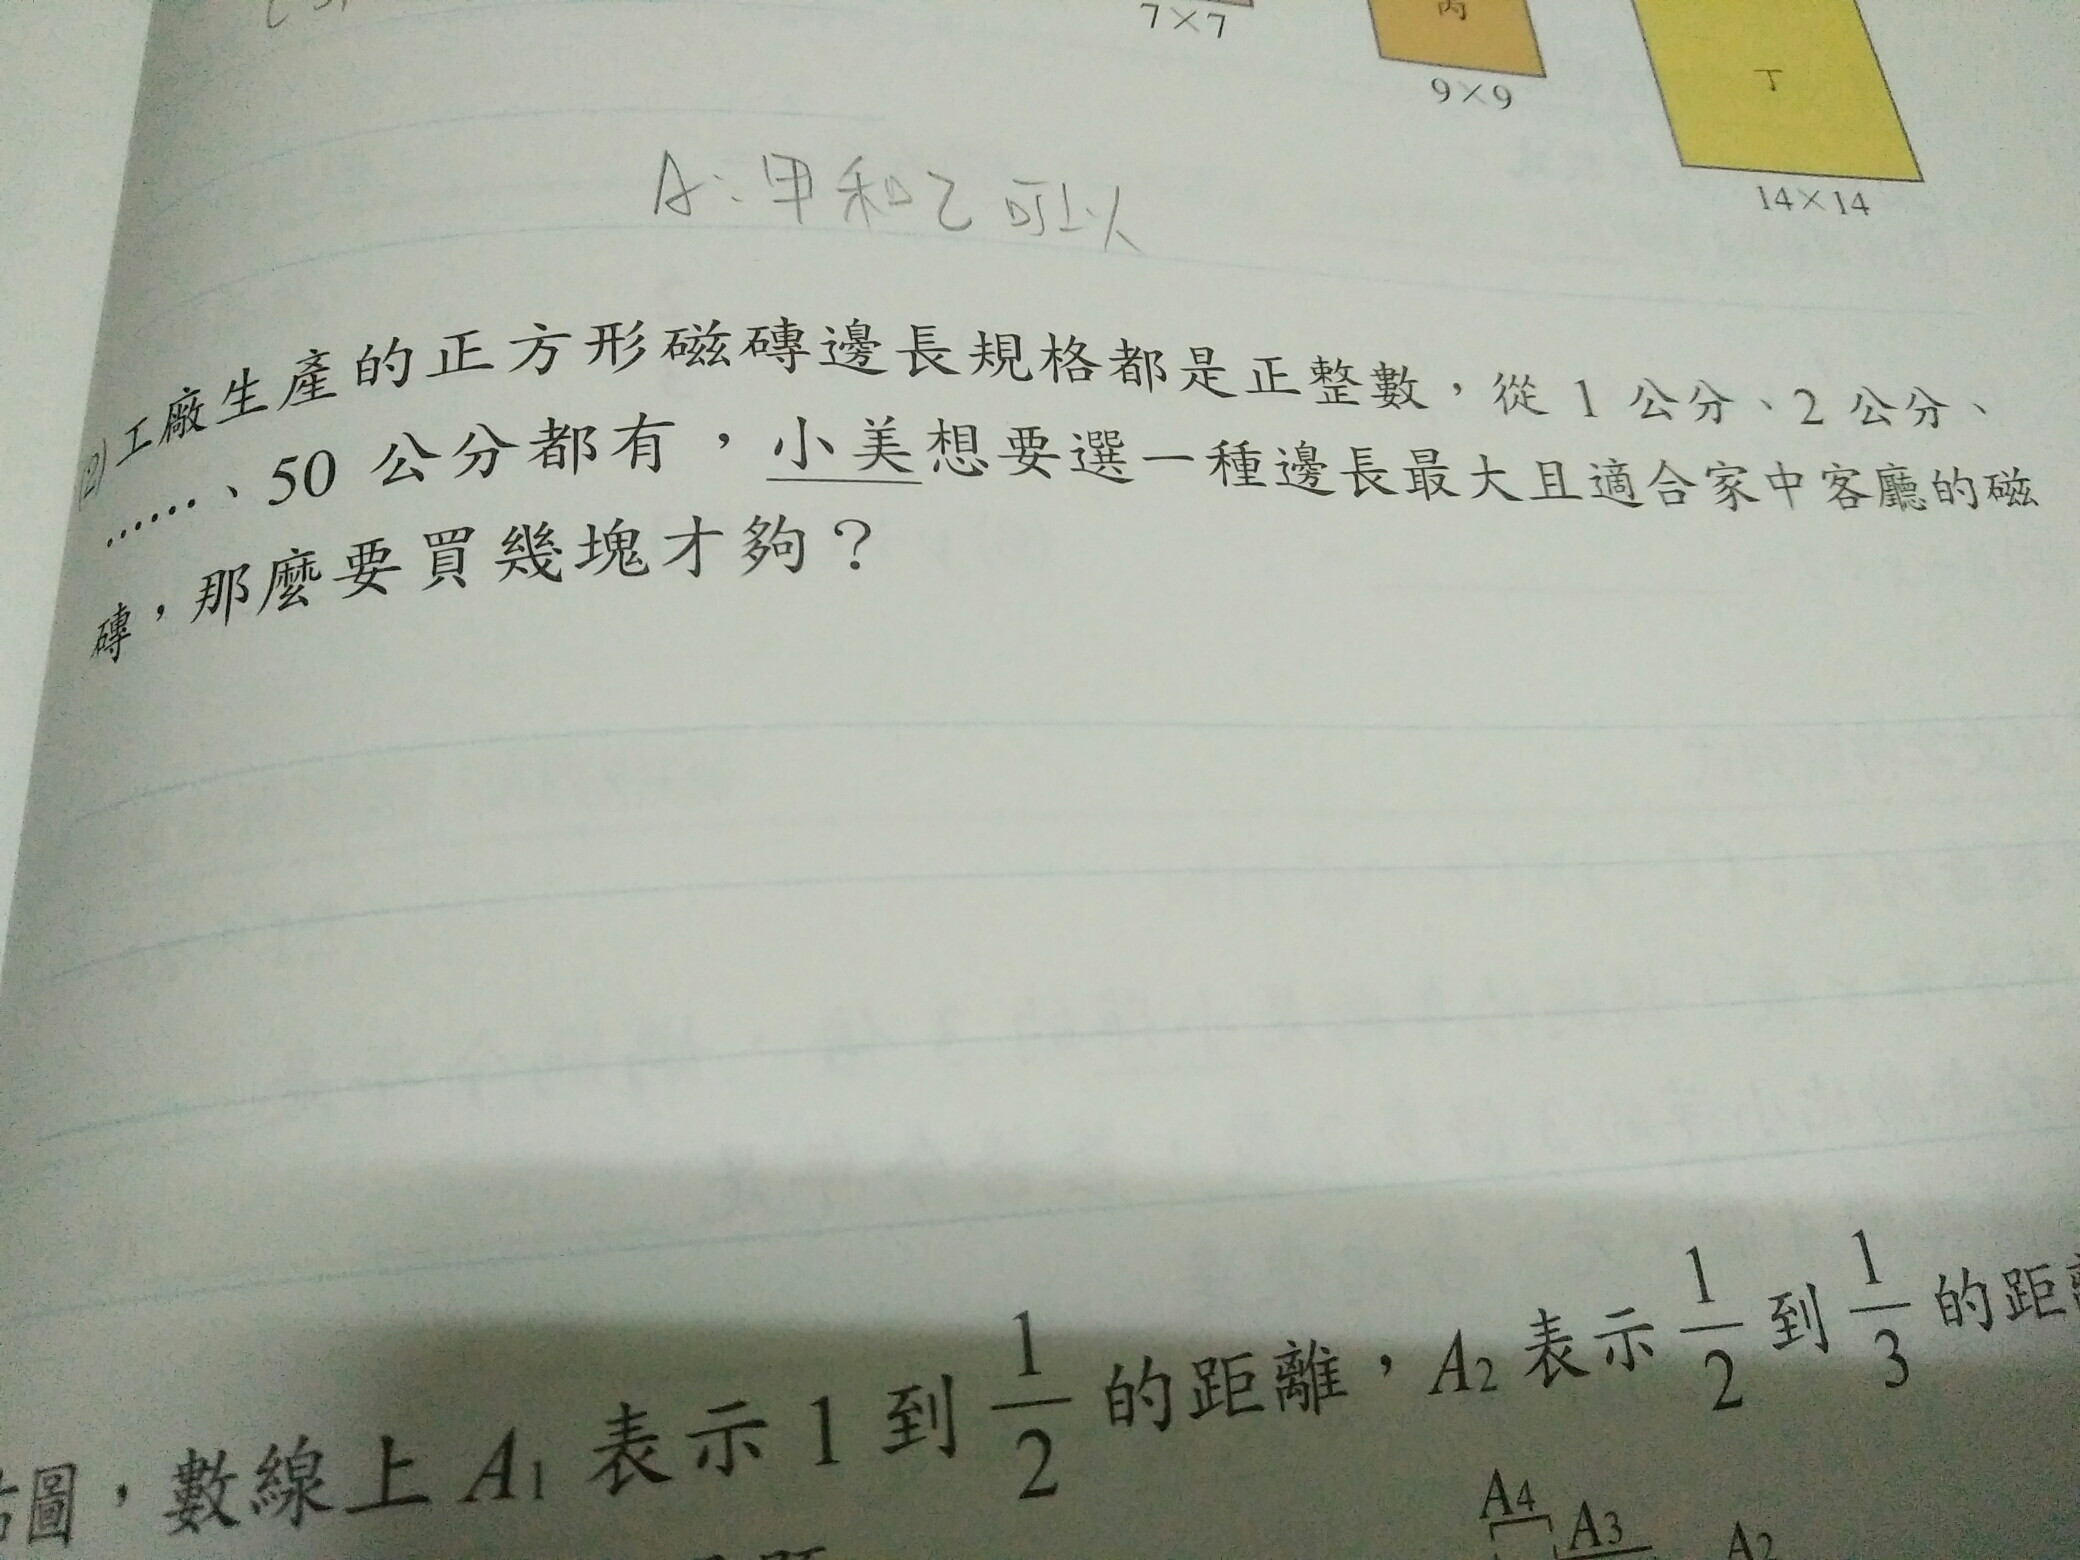 7×7
丙
9×9
丁
14×14
A:甲和乙可以
(2)工廠生產的正方形磁磚邊長規格都是正整數，從 1 公分、2 公分、
……、50 公分都有，小美想要選一種邊長最大且適合家中客廳的磁
磚，那麼要買幾塊才夠？
圖，數線上 A1 表示 1 到 1/2 的距離，A2 表示 1/2 到 1/3 的距
A4
A3
A2